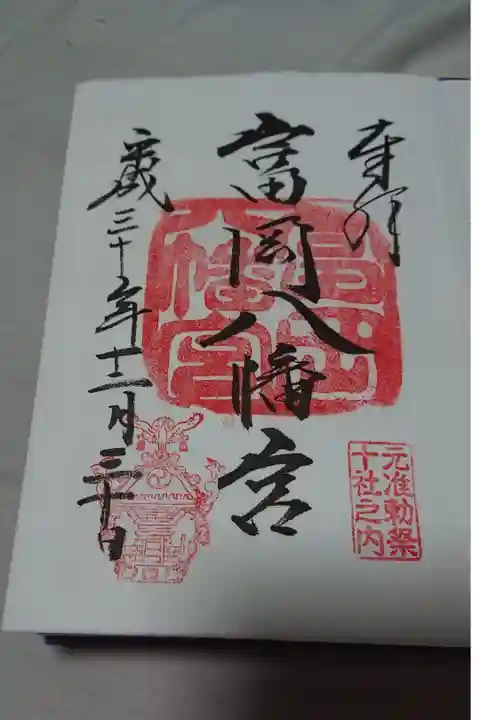 奉拝
富岡八幡宮
元准勅祭
十社之内
平成三十年十二月三十日